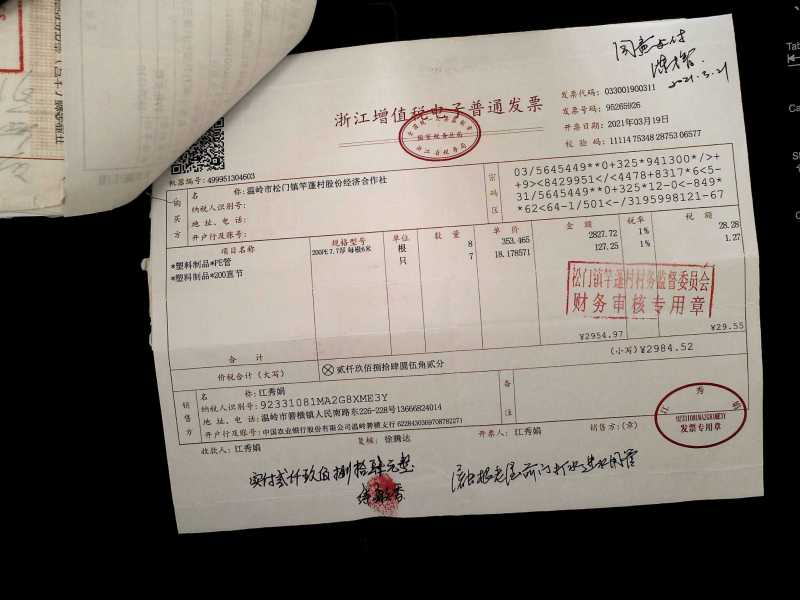 同意支付
2021.3.21
浙江增值税电子普通发票
国家税务总局
浙江省税务局
发票代码：033001900311
发票号码：95265926
开票日期：2021年03月19日
校验码：11114 75348 28753 06577
机器编号：499951304603
购买方
名称：温岭市松门镇竿蓬村股份经济合作社
纳税人识别号：
地址、电话：
开户行及账号：
密码区
03/5645449**0+325*941300*/>+
+9><8429951</<4478+8317*6<5-
31/5645449**0+325*12-0<-849*
*62<64-1/501<-/3195998121-67
项目名称 规格型号 单位 数量 单价 金额 税率 税额
*塑料制品*PE管 200PE7.7厚 每根6米 根 8 353.465 2827.72 1% 28.28
*塑料制品*200直节 只 7 18.178571 127.25 1% 1.27
松门镇竿蓬村村务监督委员会
财务审核专用章
合计 ¥2954.97 ¥29.55
价税合计（大写） 贰仟玖佰捌拾肆圆伍角贰分 （小写）¥2984.52
销售方
名称：江秀娟
纳税人识别号：92331081MA2G8XME3Y
地址、电话：温岭市箬横镇人民南路东226-228号13666824014
开户行及账号：中国农业银行股份有限公司温岭箬横支行 6228430369708782271
备注
收款人：江秀娟 复核：徐腾达 开票人：江秀娟 销售方：(章)
江秀娟
92331081MA2G8XME3Y
发票专用章
实付贰仟玖佰捌拾肆元整